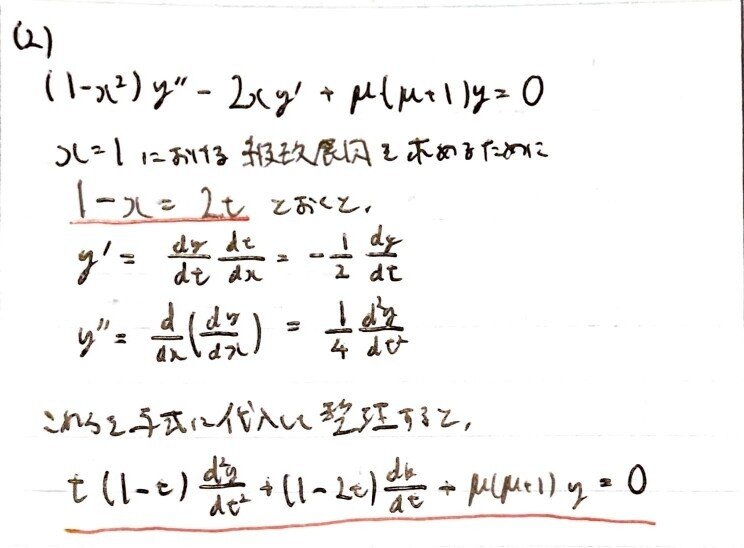 (2)
(1-x²)y'' - 2xy' + μ(μ+1)y = 0
x=1 における 級数展開を求めるために
1-x = 2t とおくと,
y' = dy/dt dt/dx = -1/2 dy/dt
y'' = d/dx(dy/dx) = 1/4 d²y/dt²
これらを与式に代入して整理すると,
t(1-t) d²y/dt² + (1-2t) dy/dt + μ(μ+1)y = 0